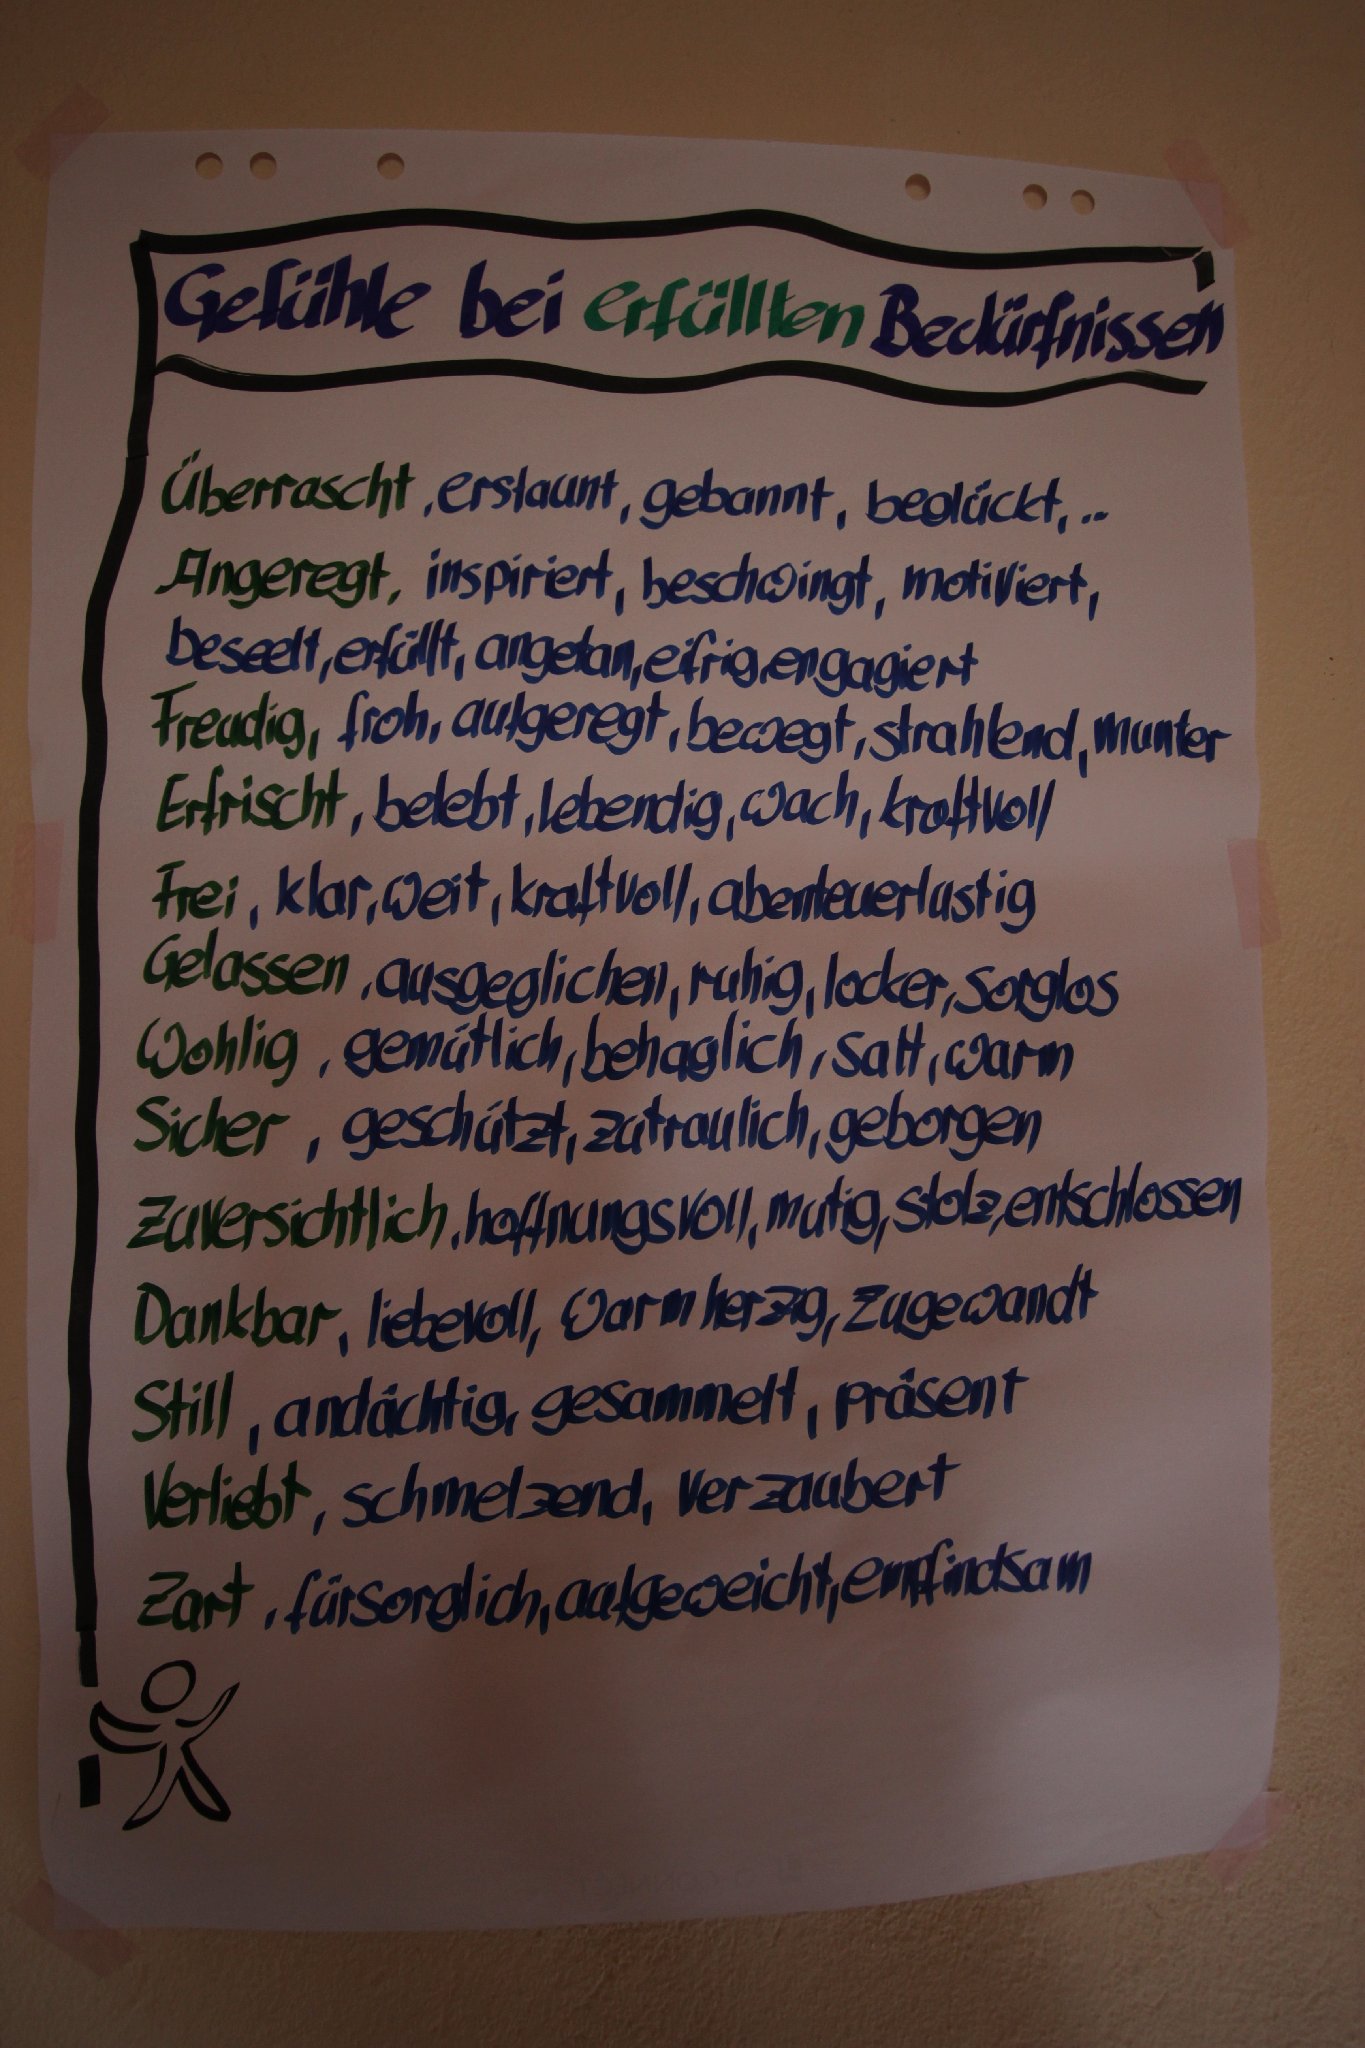 Gefühle bei erfüllten Bedürfnissen
Überrascht, erstaunt, gebannt, beglückt, ..
Angeregt, inspiriert, beschwingt, motiviert,
beseelt, erfüllt, angetan, eifrig, engagiert
Freudig, froh, aufgeregt, bewegt, strahlend, munter
Erfrischt, belebt, lebendig, wach, kraftvoll
Frei, klar, weit, kraftvoll, abenteuerlustig
Gelassen, ausgeglichen, ruhig, locker, sorglos
Wohlig, gemütlich, behaglich, satt, warm
Sicher, geschützt, zutraulich, geborgen
Zuversichtlich, hoffnungsvoll, mutig, stolz, entschlossen
Dankbar, liebevoll, warmherzig, zugewandt
Still, andächtig, gesammelt, präsent
Verliebt, schmelzend, verzaubert
Zart, fürsorglich, aufgeweicht, empfindsam